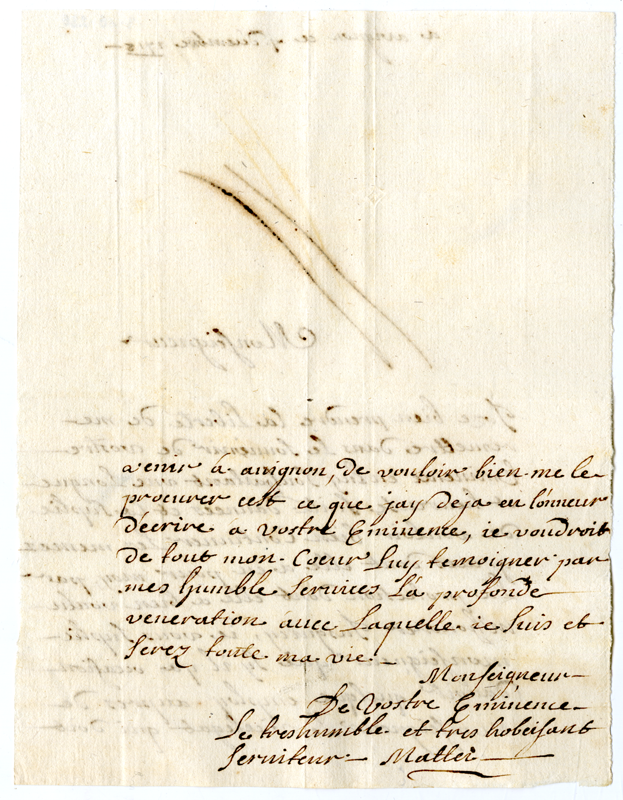 avenir à avignon, de vouloir bien me le
procurer cest ce que jay deja eu lónneur
décrire a vostre Eminence, ie voudroit
de tout mon Coeur Luy temoigner par
mes humble Services La profonde
veneration avec Laquelle ie suis et
serez toute ma vie
Monseigneur
De Vostre Eminence
Le treshumble et tres hobeisant
serviteur Mallei